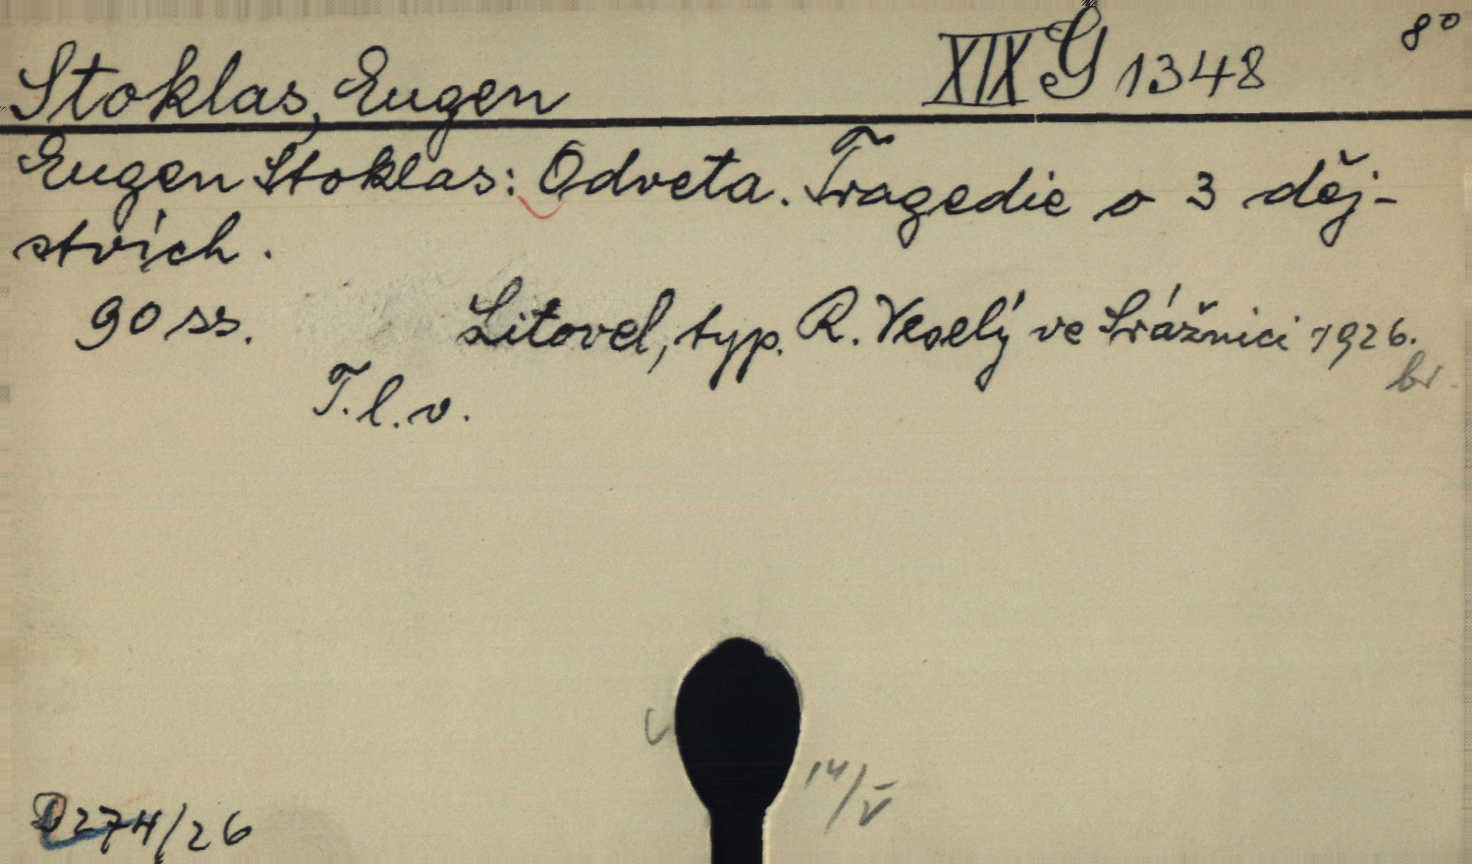 Stoklas, Eugen XIX G 1348 8°
Eugen Stoklas: Odveta. Tragedie o 3 děj-
stvích.
90 ss. Litovel, typ. R. Veselý ve Strážnici 1926.
br.
T. l. v.
14/V
D 274/26